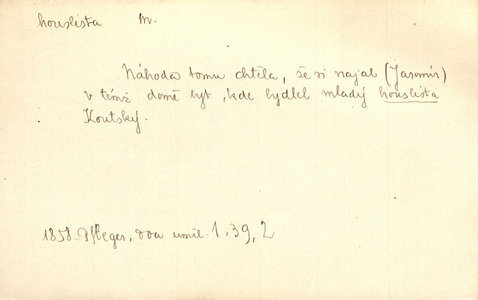 houslista m.
Náhoda tomu chtěla, že si najal (Jaromír)
v témž domě byt, kde bydlel mladý houslista
Koutský.
1858 Pfleger, dva uměl. 1, 39, 2